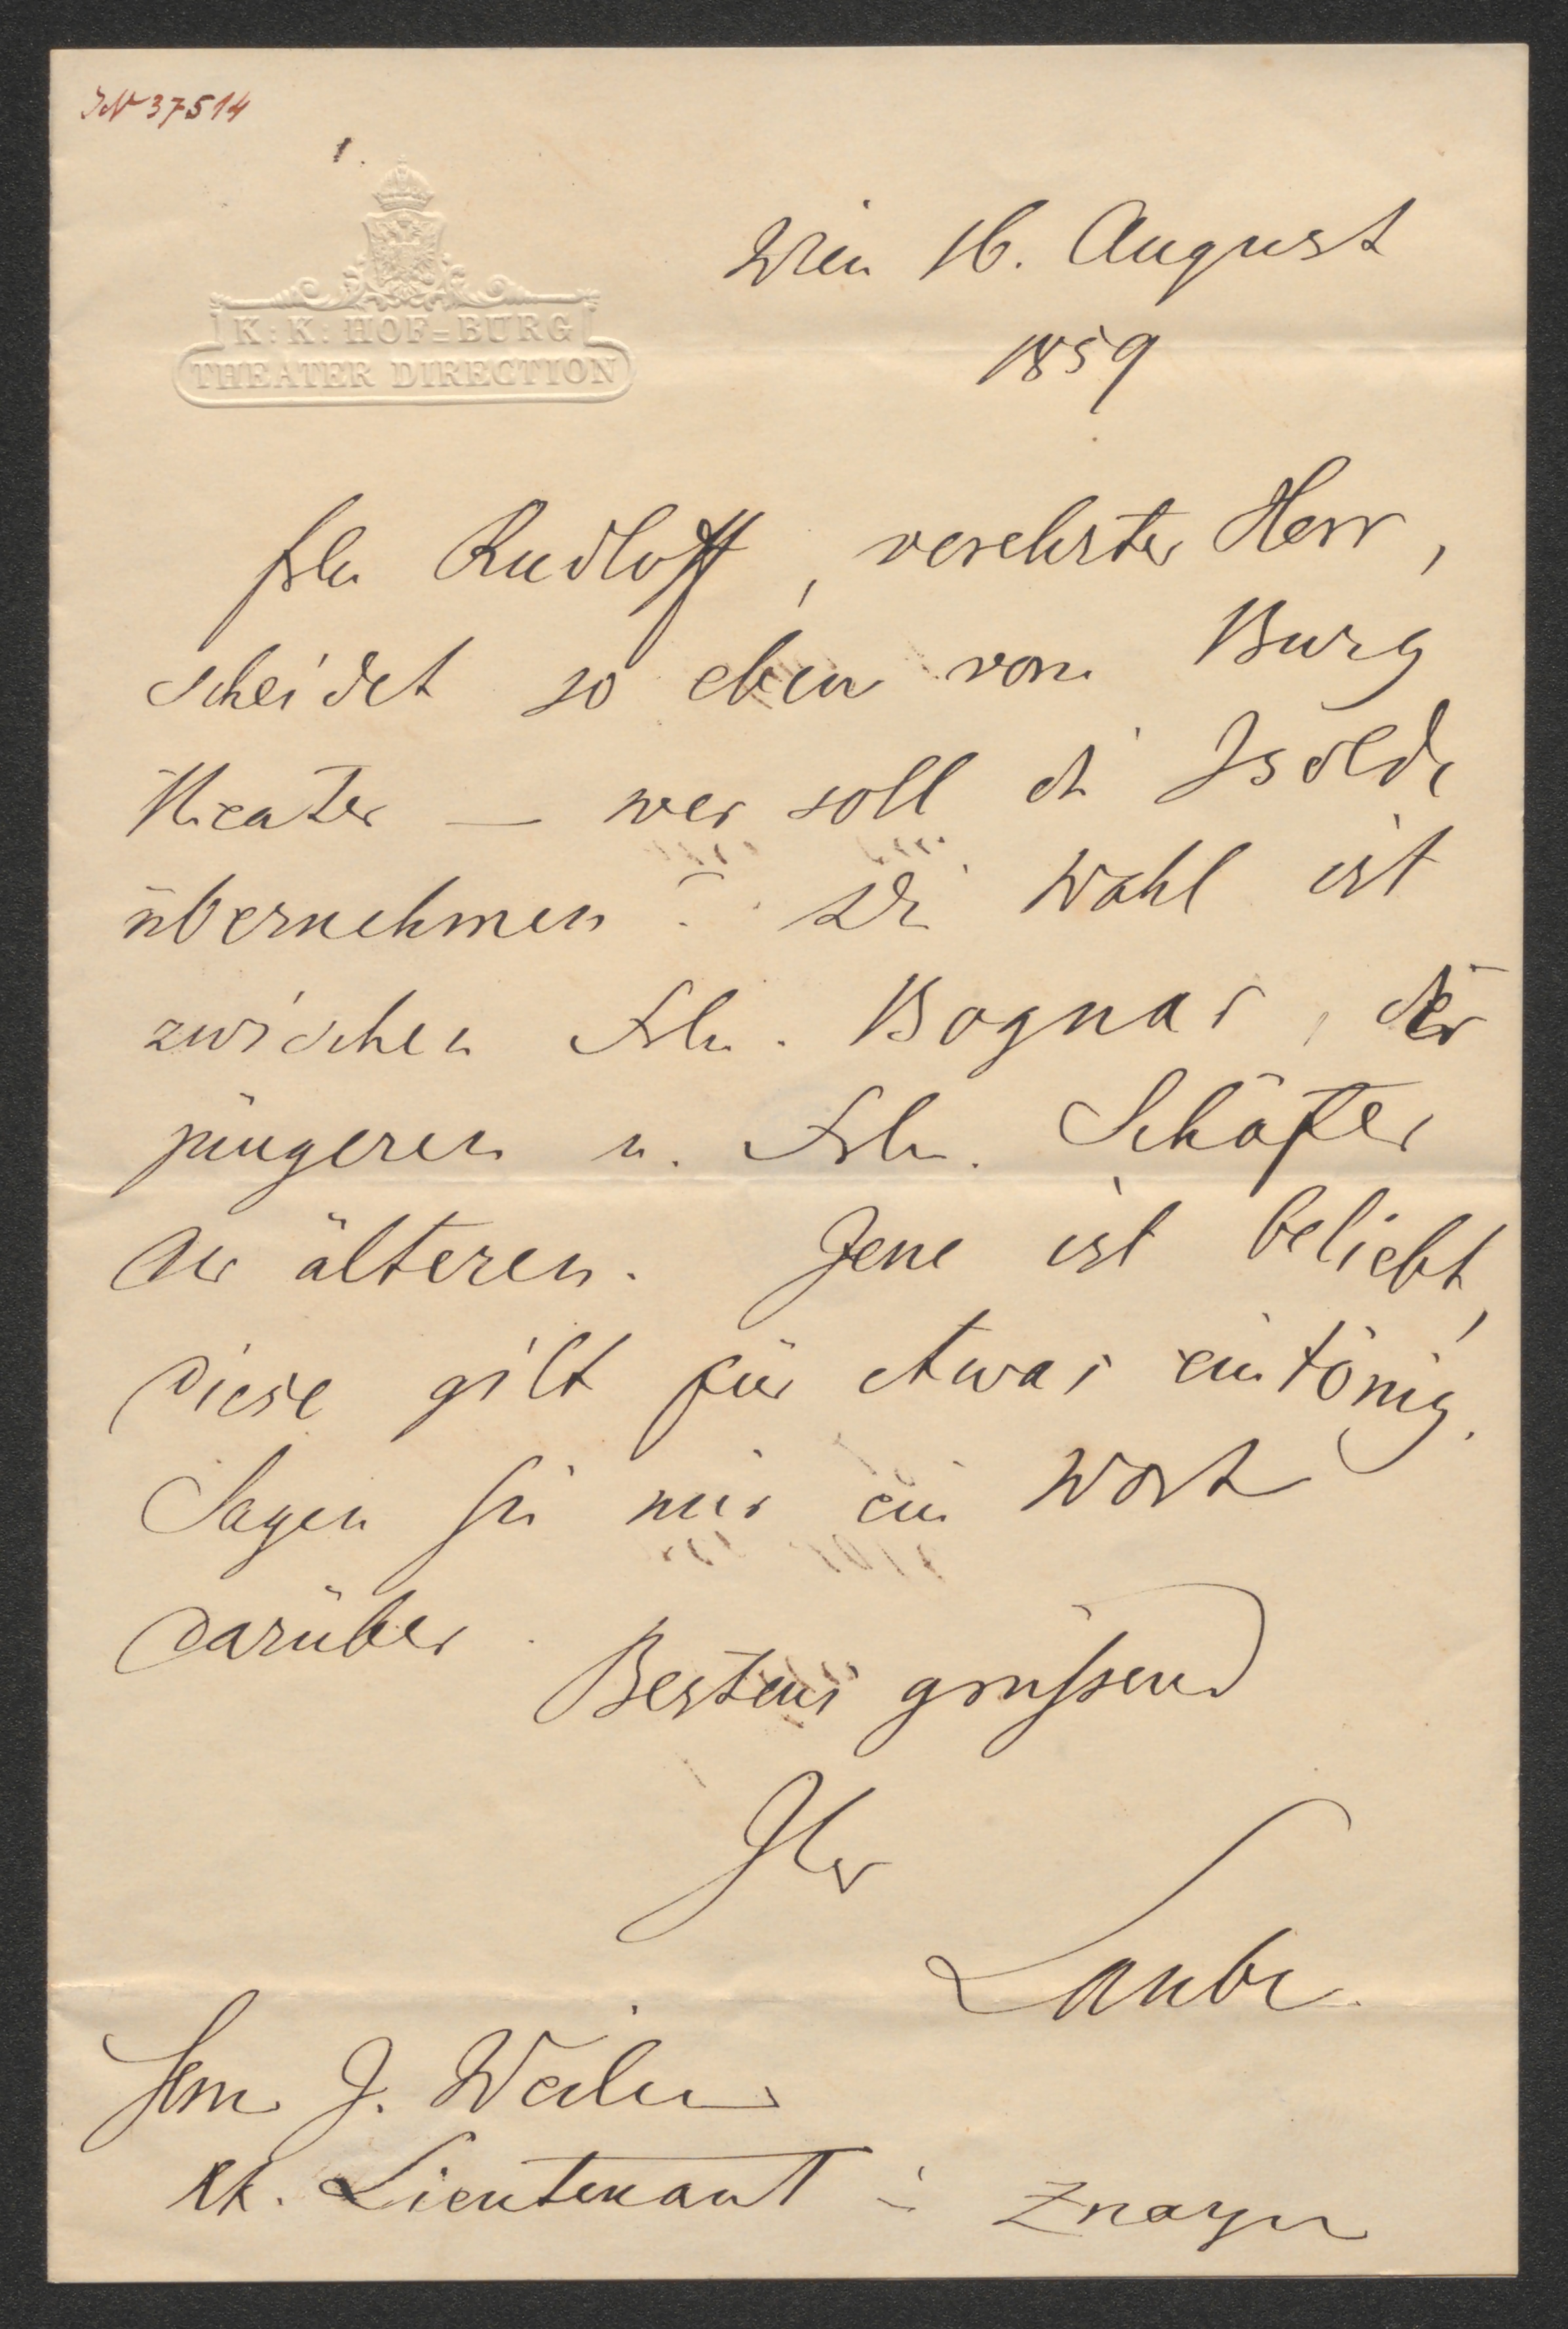 IN 37514
1.
K: K: HOF=BURG
THEATER DIRECTION
Wien 16. August
1859
Frln Rudloff, verehrter Herr,
scheidet so eben vom Burg
theater — wer soll die Isolde
übernehmen? Die Wahl ist
zwischen Frln. Bognar, der
jüngeren u. Frln. Schäfer
der älteren. Jene ist beliebt,
diese gilt für etwas eintönig.
Sagen Sie mir ein Wort
darüber.
Bestens grüssend
Ihr
Laube.
Herrn J. Weilen
kk. Lieutenant in Znaym